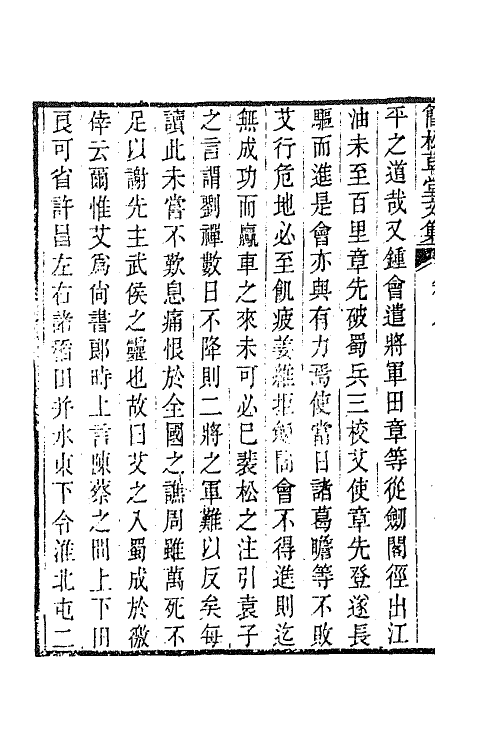 平之道哉又鍾會遣將軍田章等從劒閣徑出江
油未至百里章先破蜀兵三校艾使章先登遂長
驅而進是會亦與有力焉使當日諸葛瞻等不敗
艾行危地必至飢疲姜維拒劒閣會不得進則迄
無成功而嬴車之來未可必已裴松之注引袁子
之言謂劉禪數日不降則二將之軍難以反矣每
讀此未嘗不歎息痛恨於全國之譙周雖萬死不
足以謝先主武侯之靈也故曰艾之入蜀成於徼
倖云爾惟艾為尙書郞時上言陳蔡之間上下田
良可省許昌左右諸稻田并水東下令淮北屯二